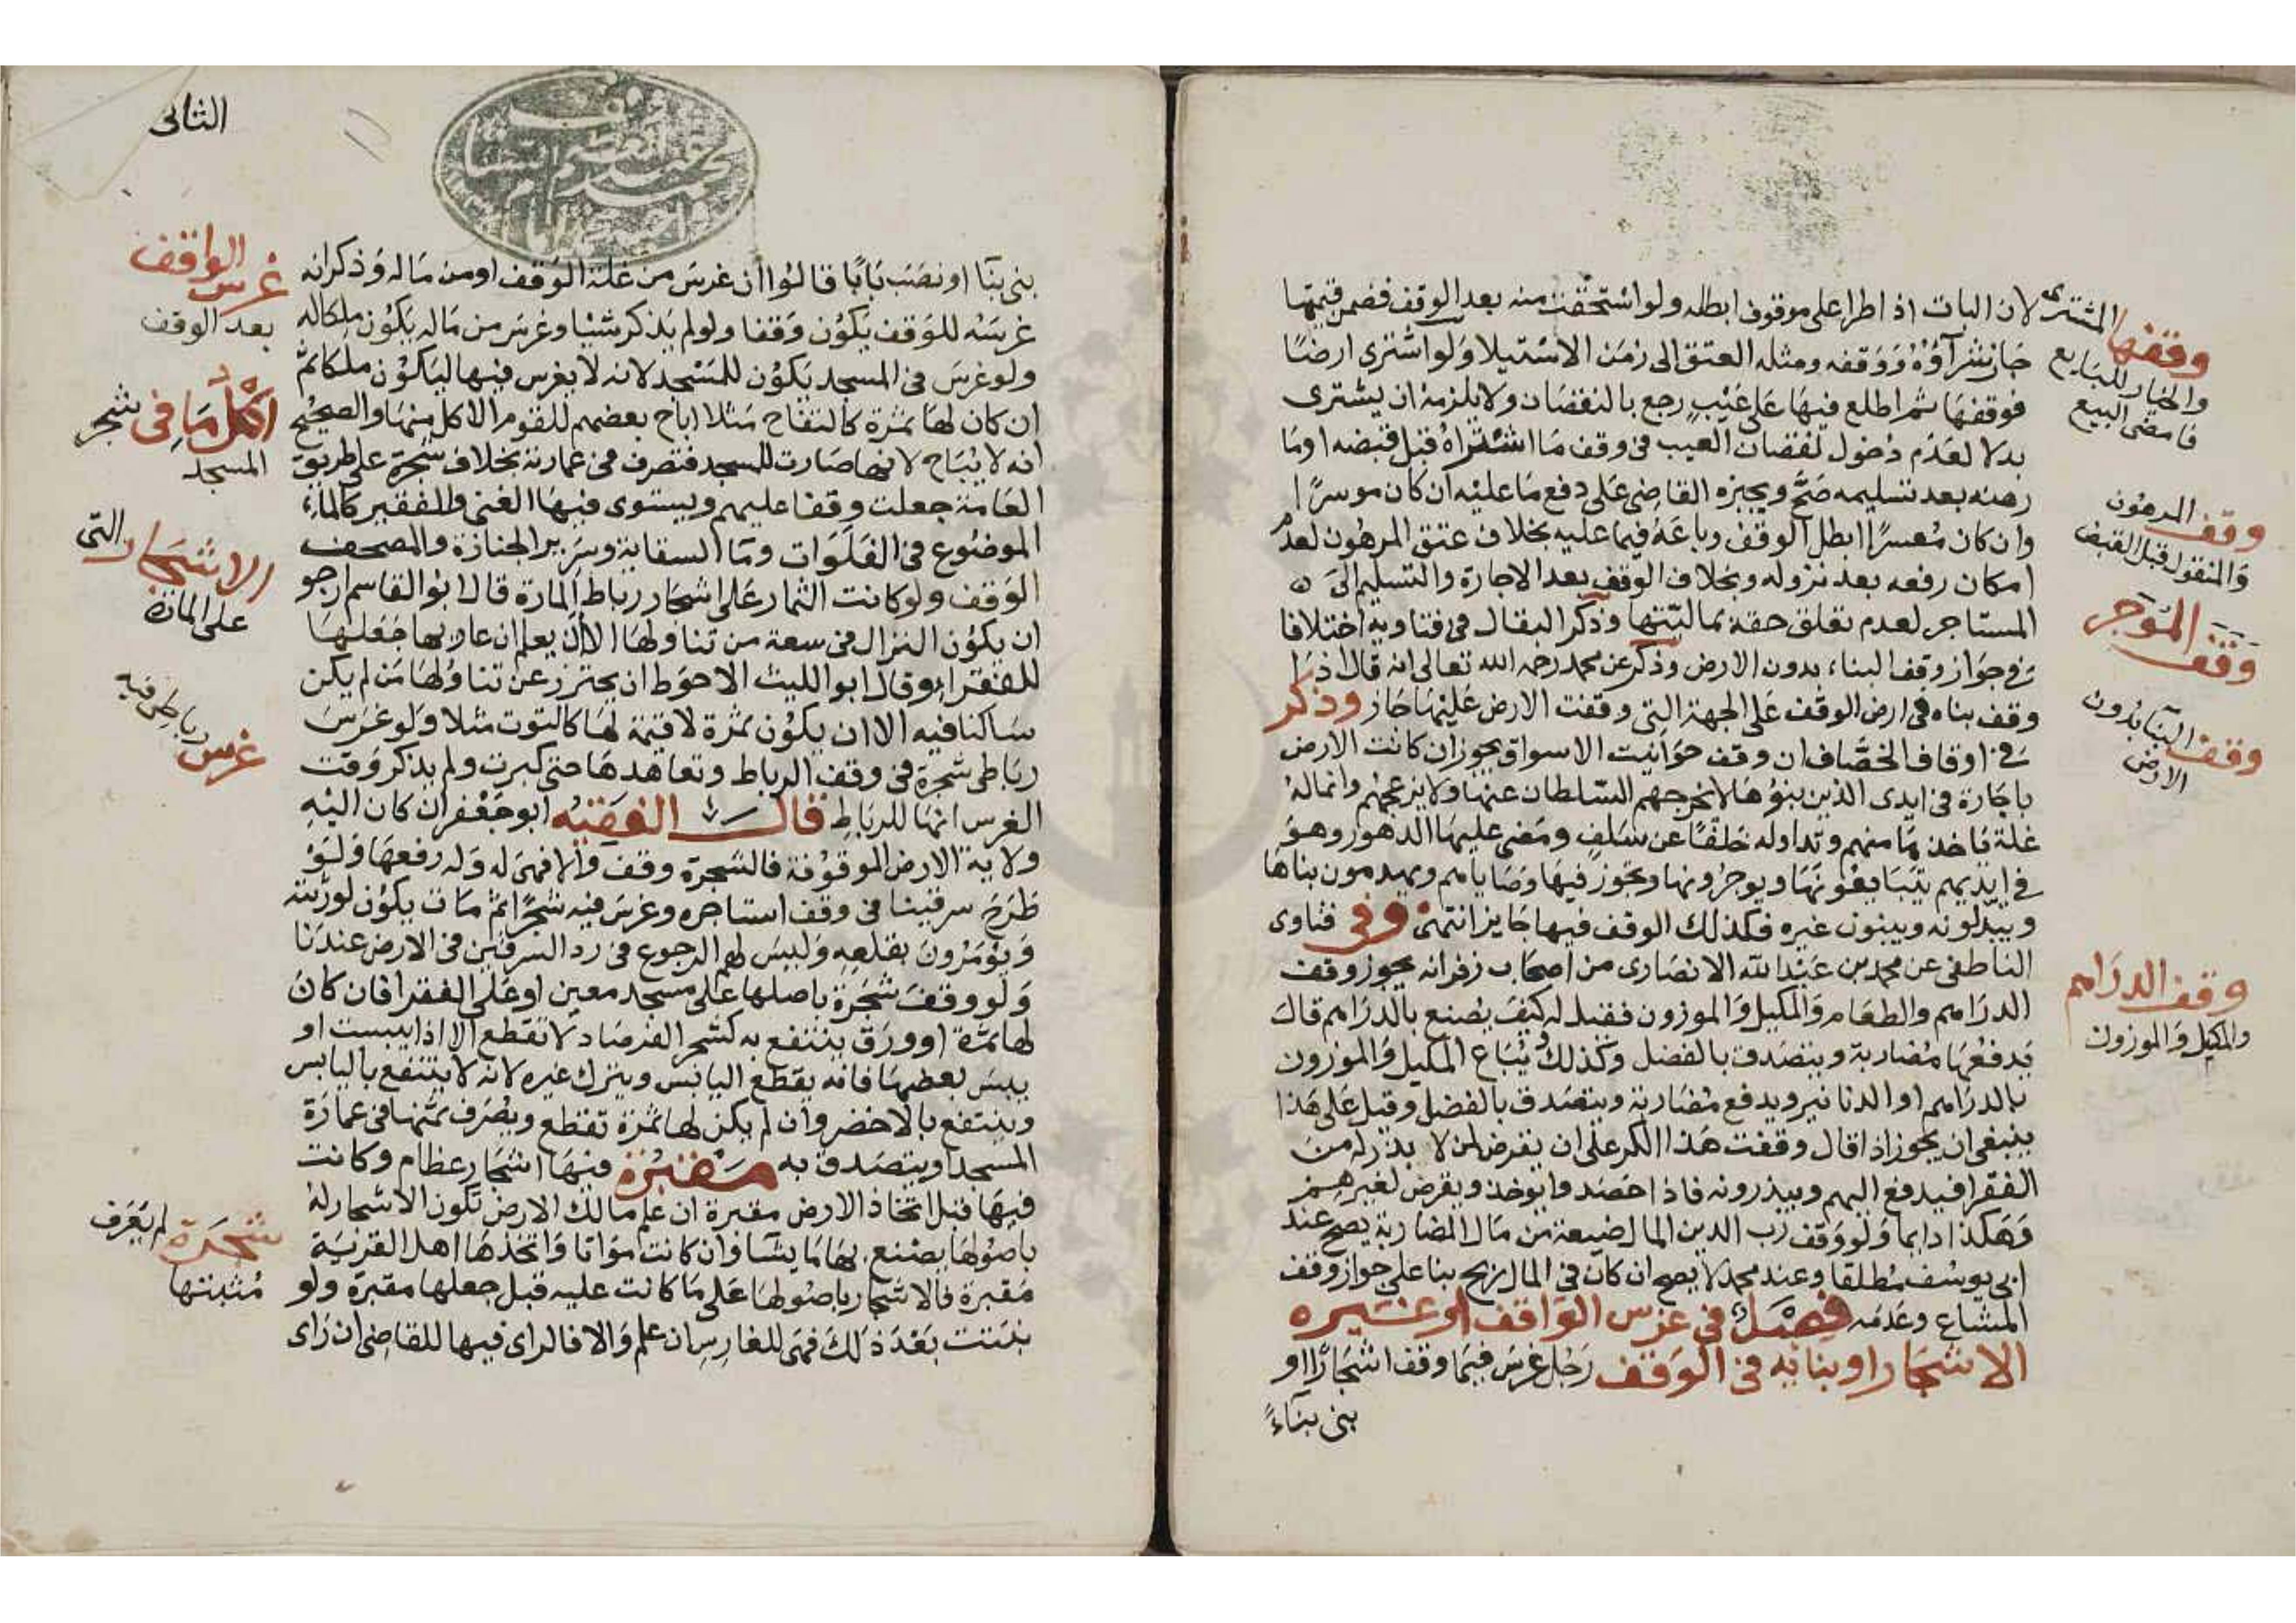 المشترى لان البات اذا طرا على موقوف ابطله ولو استحقت منه بعد الوقف فضمن قيمتها
جاز شرآؤه ووقفه ومثله العتق الى زمن الاستيلا ولو اشترى ارضا
فوقفها ثم اطلع فيها على عيب رجع بالنقصان ولا يلزمه ان يشترى
بدلا لعدم دخول نقصان العيب فى وقف ما اشتراه قبل قبضه او ما
رهنه بعد تسليمه صح ويجبره القاضى على دفع ما عليه ان كان موسرا
وان كان معسرا ابطل الوقف وباعه فيما عليه بخلاف عتق المرهون لعدم
امكان رفعه بعد نزوله وبخلاف الوقف بعد الاجارة والتسليم الى
المستاجر لعدم تعلق حقه بماليتها وذكر البقال فى فتاويه اختلافا
فى جواز وقف البناء بدون الارض وذكر عن محمد رحمه الله تعالى انه قال اذا
وقف بناه فى ارض الوقف على الجهة التى وقفت الارض عليها جاز وذكر
فى اوقاف الخصاف ان وقف حوانيت الاسواق يجوز ان كانت الارض
باجارة فى ايدى الذين بنوها لا يخرجهم السلطان عنها ولا يزعجهم وانما له
غلة ياخذها منهم وتداوله خلفا عن سلف ومضى عليها الدهور وهو
فى ايديهم يتبايعونها ويوجرونها وتجوز فيها وصاياهم ويهدمون بناها
ويبدلونه ويبنون غيره فكذلك الوقف فيها جايز انتهى وفى فتاوى
الناطفى عن محمد بن عبد الله الانصارى من اصحاب زفر انه يجوز وقف
الدراهم والطعام والمكيل والموزون فقيل له كيف يصنع بالدراهم قال
يدفعها مضاربة ويتصدق بالفضل وكذلك يباع المكيل والموزون
بالدراهم او الدنانير ويدفع مضاربة ويتصدق بالفضل وقيل على هذا
ينبغى ان يجوز اذا قال وقفت هذا الكر على ان يقرض لمن لا بذر له من
الفقرا فيدفع اليهم ويبذرونه فاذا حصدوا يوخذ ويقرض لغيرهم
وهكذا دايما ولو وقف رب الدين المال ضيعة من مال المضاربة يصح عند
ابى يوسف مطلقا وعند محمد لا يصح ان كان فى المال ربح بنا على جواز وقف
المشاع وعدمه فصل فى غرس الواقف او غيره
الاشجار او بنايه فى الوقف رجل غرس فيما وقف اشجارا او
بنى بناءً
وقفها
والخيار للبايع
فامضى البيع
وقف المرهون
والمنقول قبل القبض
وقف المؤجر
وقف البنا بدون
الارض
وقف الدراهم
والمكيل والموزون
الثانى
بنى بنا او نصب بابا قالوا ان غرس من غلة الوقف او من ماله وذكر انه
غرسه للوقف يكون وقفا ولو لم يذكر شيا وغرس من ماله يكون ملكا له
ولو غرس فى المسجد يكون للمسجد لانه لا يغرس فيها ليكون ملكا ثم
ان كان لها ثمرة كالتفاح مثلا اباح بعضهم للقوم الاكل منها والصحيح
انه لا يباح لانها صارت للمسجد فتصرف فى عمارته بخلاف شجرة على طريق
العامة جعلت وقفا عليهم ويستوى فيها الغنى والفقير كالماء
الموضوع فى الفلوات وما السقاية وسرير الجنازة والمصحف
الوقف ولو كانت الثمار على اشجار رباط المارة قال ابو القاسم ارجو
ان يكون النزال فى سعة من تناولها الا ان يعلم ان غارسها جعلها
للفقرا وقال ابو الليث الاحوط ان يحترز عن تناولها من لم يكن
ساكنا فيه الا ان يكون ثمرة لا قيمة لها كالتوت مثلا ولو غرس
رباطى شجرة فى وقف الرباط وتعاهدها حتى كبرت ولم يذكر وقت
الغرس انها للرباط قال الفقيه ابو جعفر ان كان اليه
ولاية الارض الموقوفة فالشجرة وقف والا فهى له وله رفعها ولو
طرح سرقينا فى وقف استاجره وغرس فيه شجرا ثم مات يكون لورثته
ويؤمرون بقلعه وليس لهم الرجوع فى رد السرقين فى الارض عندنا
ولو وقف شجرة باصلها على مسجد معين او على الفقرا فان كان
لها ثمرة او ورق ينتفع به كشجر الفرصاد لا تقطع الا اذا يبست او
يبس بعضها فانه يقطع اليابس ويترك غيره لانه لا ينتفع باليابس
وينتفع بالاخضر وان لم يكن لها ثمرة تقطع ويصرف ثمنها فى عمارة
المسجد او يتصدق به مقبرة فيها اشجار عظام وكانت
فيها قبل اتخاذ الارض مقبرة ان علم مالك الارض تكون الاشجار له
باصولها يصنع بها ما يشا وان كانت مواتا واتخذها اهل القرية
مقبرة فالاشجار باصولها على ما كانت عليه قبل جعلها مقبرة ولو
نبتت بعد ذلك فهى للغارس ان علم والا فالراى فيها للقاضى ان راى
غرس الواقف
بعد الوقف
اكل ما فى شجر
المسجد
الاشجار التى
على المارة
غرس رباطى فيه
شجرة لم يعرف
مثبتها